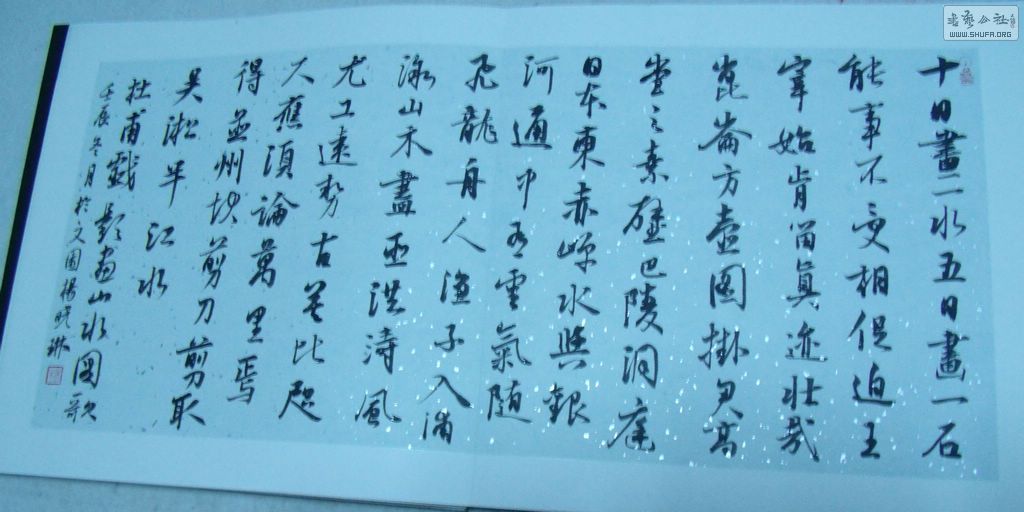 十日畫二水五日畫一石
能事不受相促迫王
宰始肯留真迹壯哉
崑崙方壺圖掛君高
堂之素壁巴陵洞庭
日本東赤岸水與銀
河通中有雲氣隨
飛龍舟人漁子入浦
漵山木盡亞洪濤風
尤工遠勢古莫比咫
尺應須論萬里焉
得並州快剪刀剪取
吳淞半江水
杜甫戲題畫山水圖歌
壬辰冬月於文園楊曉琳
書藝公社
WWW.SHUFA.ORG